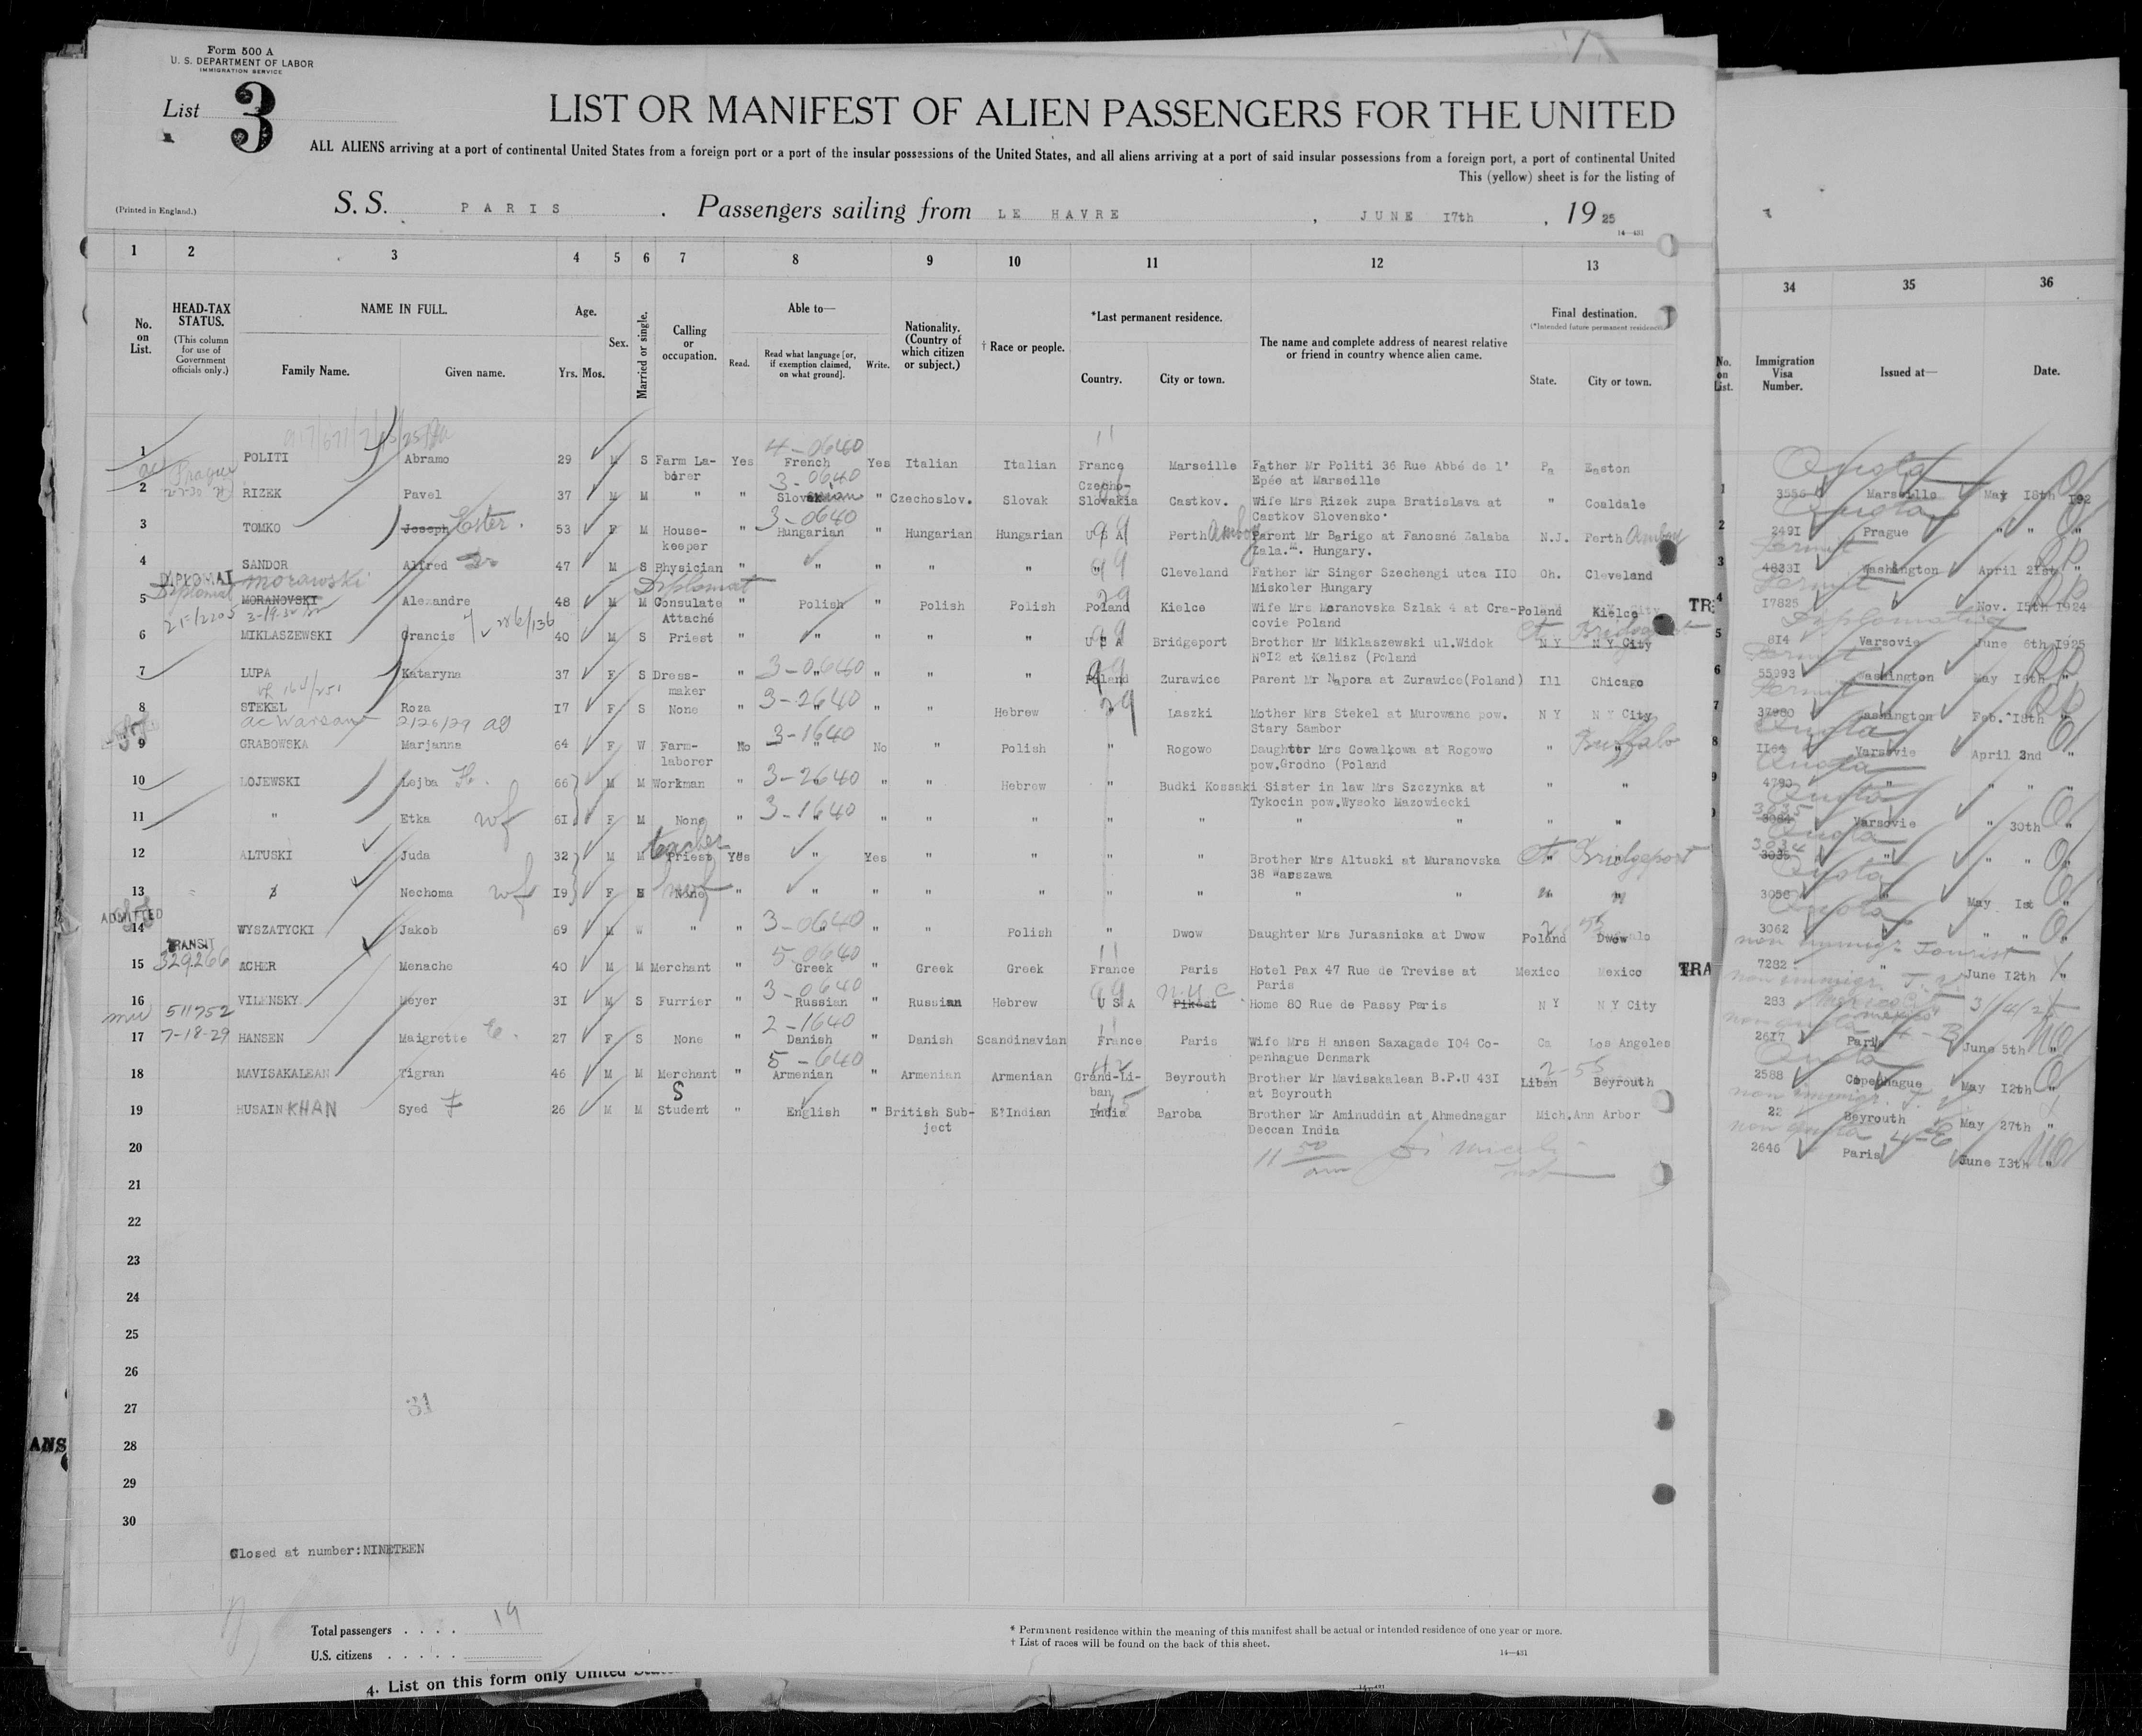 Form 500 A
U. S. DEPARTMENT OF LABOR
IMMIGRATION SERVICE
List 3
LIST OR MANIFEST OF ALIEN PASSENGERS FOR THE UNITED
ALL ALIENS arriving at a port of continental United States from a foreign port or a port of the insular possessions of the United States, and all aliens arriving at a port of said insular possessions from a foreign port, a port of continental United
This (yellow) sheet is for the listing of
(Printed in England.)
S. S. PARIS . Passengers sailing from LE HAVRE , JUNE 17th , 19 25
14—431
1 2 3 4 5 6 7 8 9 10 11 12 13
34 35 36
No. on List.
HEAD-TAX STATUS.
(This column for use of Government officials only.)
NAME IN FULL.
Family Name. Given name.
Age.
Yrs. Mos.
Sex.
Married or single.
Calling or occupation.
Able to—
Read.
Read what language [or, if exemption claimed, on what ground].
Write.
Nationality. (Country of which citizen or subject.)
† Race or people.
*Last permanent residence.
Country. City or town.
The name and complete address of nearest relative or friend in country whence alien came.
Final destination.
(*Intended future permanent residence.)
State. City or town.
No. on List.
Immigration Visa Number.
Issued at—
Date.
4-0640
1 POLITI Abramo 29 M S Farm La- Yes French Yes Italian Italian France Marseille Father Mr Politi 36 Rue Abbé de l' Pa Easton
borer Epée at Marseille
Prague 3-0640
2 RIZEK Pavel 37 M M " " Slovak " Czechoslov. Slovak Czecho-Slovakia Castkov. Wife Mrs Rizek zupa Bratislava at " Coaldale
Castkov Slovensko
3-0640
3 TOMKO Joseph Ester. 53 F M House- " Hungarian " Hungarian Hungarian U S A Perth Amboy Parent Mr Barigo at Fanosné Zalaba N.J. Perth Amboy
keeper Zala.M. Hungary.
4 SANDOR Alfred Dr 47 M S Physician " " " " " " Cleveland Father Mr Singer Szechengi utca 110 Oh. Cleveland
Miskoler Hungary
DIPLOMAT Diplomat Morawski Diplomat
5 MORANOVSKI Alexandre 48 M M Consulate " Polish " Polish Polish Poland Kielce Wife Mrs Moranovska Szlak 4 at Cra- Poland Kielce
Attaché covie Poland
6 MIKLASZEWSKI Francis 40 M S Priest " " " " " U S A Bridgeport Brother Mr Miklaszewski ul.Widok N Y N Y City
N°12 at Kalisz (Poland
3-0640
7 LUPA Kataryna 37 F S Dress- " " " " " Poland Zurawice Parent Mr Napora at Zurawice(Poland) Ill Chicago
maker
3-2640
8 STEKEL Roza 17 F S None " " " " Hebrew " Laszki Mother Mrs Stekel at Murowane pow. N Y N Y City
ac Warsaw 2/26/29 Stary Sambor
3-1640
9 GRABOWSKA Marjanna 64 F W Farm- No " No " Polish " Rogowo Daughter Mrs Gowalkowa at Rogowo " Buffalo
laborer pow.Grodno (Poland
3-2640
10 LOJEWSKI Lejba 66 M M Workman " " " " Hebrew " Budki Kossaki Sister in law Mrs Szczynka at " "
Tykocin pow.Wysoko Mazowiecki
3-1640
11 " Etka wf 61 F M None " " " " " " " " " " "
teacher
12 ALTUSKI Juda 32 M M Priest Yes " Yes " " " " Brother Mrs Altuski at Muranovska Ct Bridgeport
38 Warszawa
13 Nechoma wf 19 F None " " " " " " " " " " "
ADMITTED 3-0640
14 WYSZATYCKI Jakob 69 M W " " " " " Polish " Dwow Daughter Mrs Jurasniska at Dwow Poland Dwow
TRANSIT 5-0640
15 329266 ACHER Menache 40 M M Merchant " Greek " Greek Greek France Paris Hotel Pax 47 Rue de Trevise at Mexico Mexico
Paris
3-0640
16 VILENSKY Meyer 31 M S Furrier " Russian " Russian Hebrew U S A N.Y.C Home 80 Rue de Passy Paris N Y N Y City
511752 2-1640
17 7-18-29 HANSEN Maigrette 27 F S None " Danish " Danish Scandinavian France Paris Wife Mrs Hansen Saxagade 104 Co- Ca Los Angeles
penhague Denmark
5-640
18 MAVISAKALEAN Tigran 46 M M Merchant " Armenian " Armenian Armenian Grand-Li-ban Beyrouth Brother Mr Mavisakalean B.P.U 431 Liban Beyrouth
at Beyrouth
S
19 HUSAIN KHAN Syed 26 M M Student " English " British Sub- E?Indian India Baroba Brother Mr Aminuddin at Ahmednagar Mich. Ann Arbor
ject Deccan India
20
21
22
23
24
25
26
27
28
29
30
Closed at number:NINETEEN
Total passengers . . . . 19
U.S. citizens . . . . .
* Permanent residence within the meaning of this manifest shall be actual or intended residence of one year or more.
† List of races will be found on the back of this sheet.
14—431
4. List on this form only United
ANS
TRA
Quota
3556 Marseille May 18th 192
Quota
2491 Prague " " "
Permit
48331 Washington April 21st "
Permit
17825 Nov. 15th 1924
Diplomatic
814 Varsovie June 6th 1925
Permit
55093 Washington May 16th "
Permit
37980 Washington Feb. 18th "
Quota
1164 Varsovie April 2nd "
Quota
4790 " " " "
Quota
3035 Varsovie " 30th "
Quota
3034 " " " "
Quota
3058 May 1st "
Quota
3062 " " " "
non immigr. Tourist
7282 " June 12th "
non immigr.
283 3/4/25
non quota
2617 Paris June 5th "
Quota
2588 Copenhague May 12th "
non immigr.
22 Beyrouth May 27th "
non quota 4-E
2646 Paris June 13th "